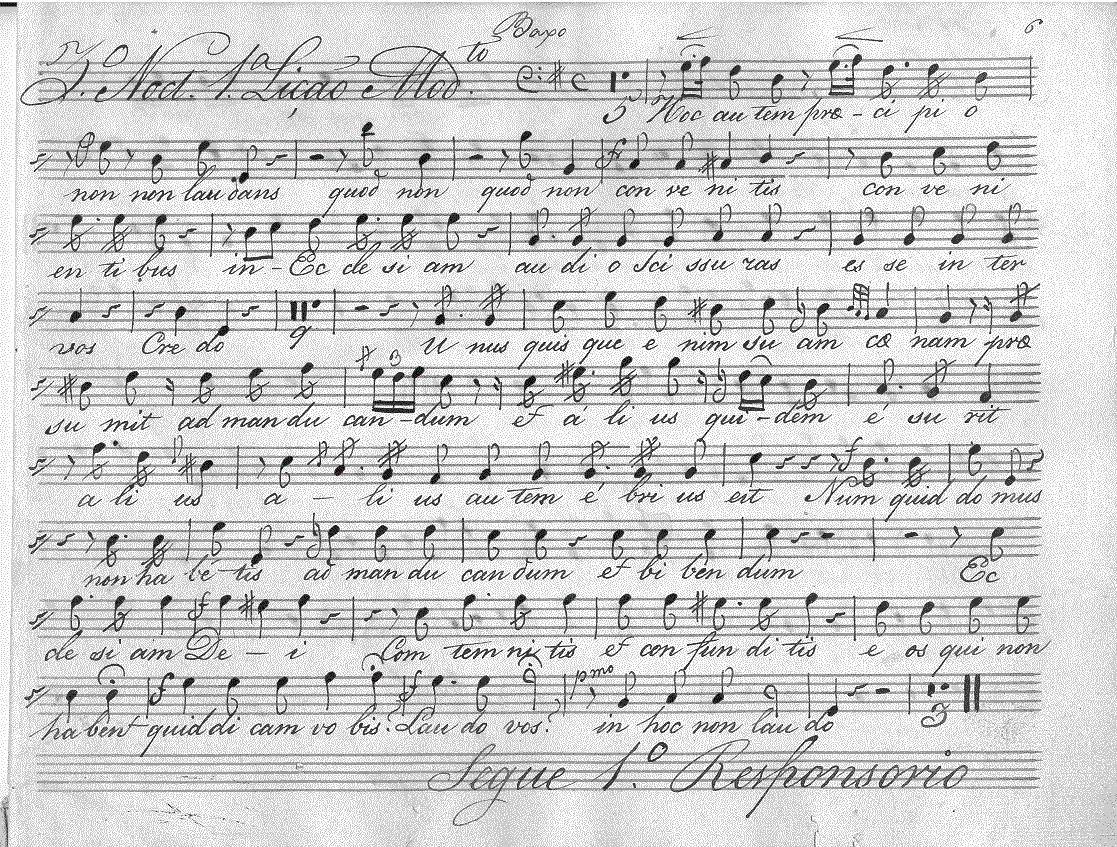 Baxo 6
3.º Noct. 1.ª Lição Mod.to
5 Hoc au tem præ - ci pi o
non non lau dans quod non quod non con ve ni tis con ve ni
en ti bus in - Ec cle si am au di o Sci ssu ras es se in ter
vos Cre do 9 U nus quis que e nim su am cœ nam præ
su mit ad man du can - dum et á li us qui - dem é su rit
3
a li us a - li us au tem é bri us est Num quid do mus
f
non ha be tis ad man du can dum et bi ben dum Ec
cle si am De - i Com tem ni tis et con fun di tis e os qui non
f
ha bent quid di cam vo bis? Lau do vos? in hoc non lau do 3
f f pmo
Segue 1.º Responsorio